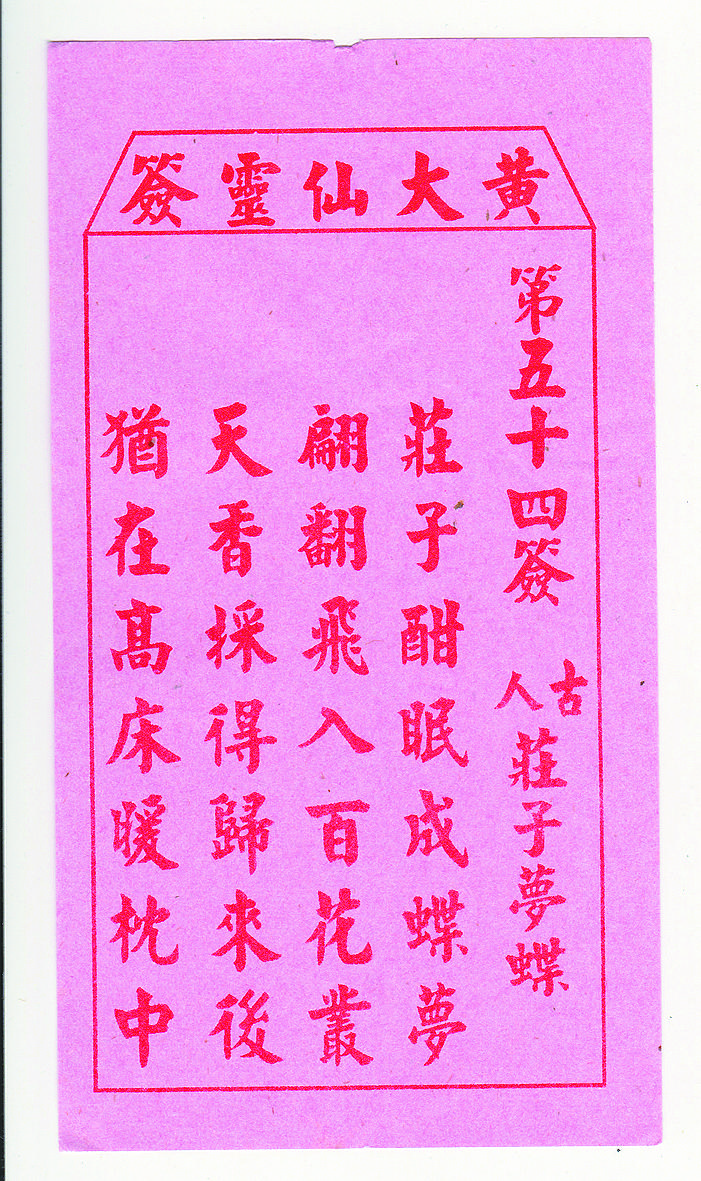 黃大仙靈簽
第五十四簽 古人 莊子夢蝶
莊子酣眠成蝶夢
翩翻飛入百花叢
天香採得歸來後
猶在高床暖枕中